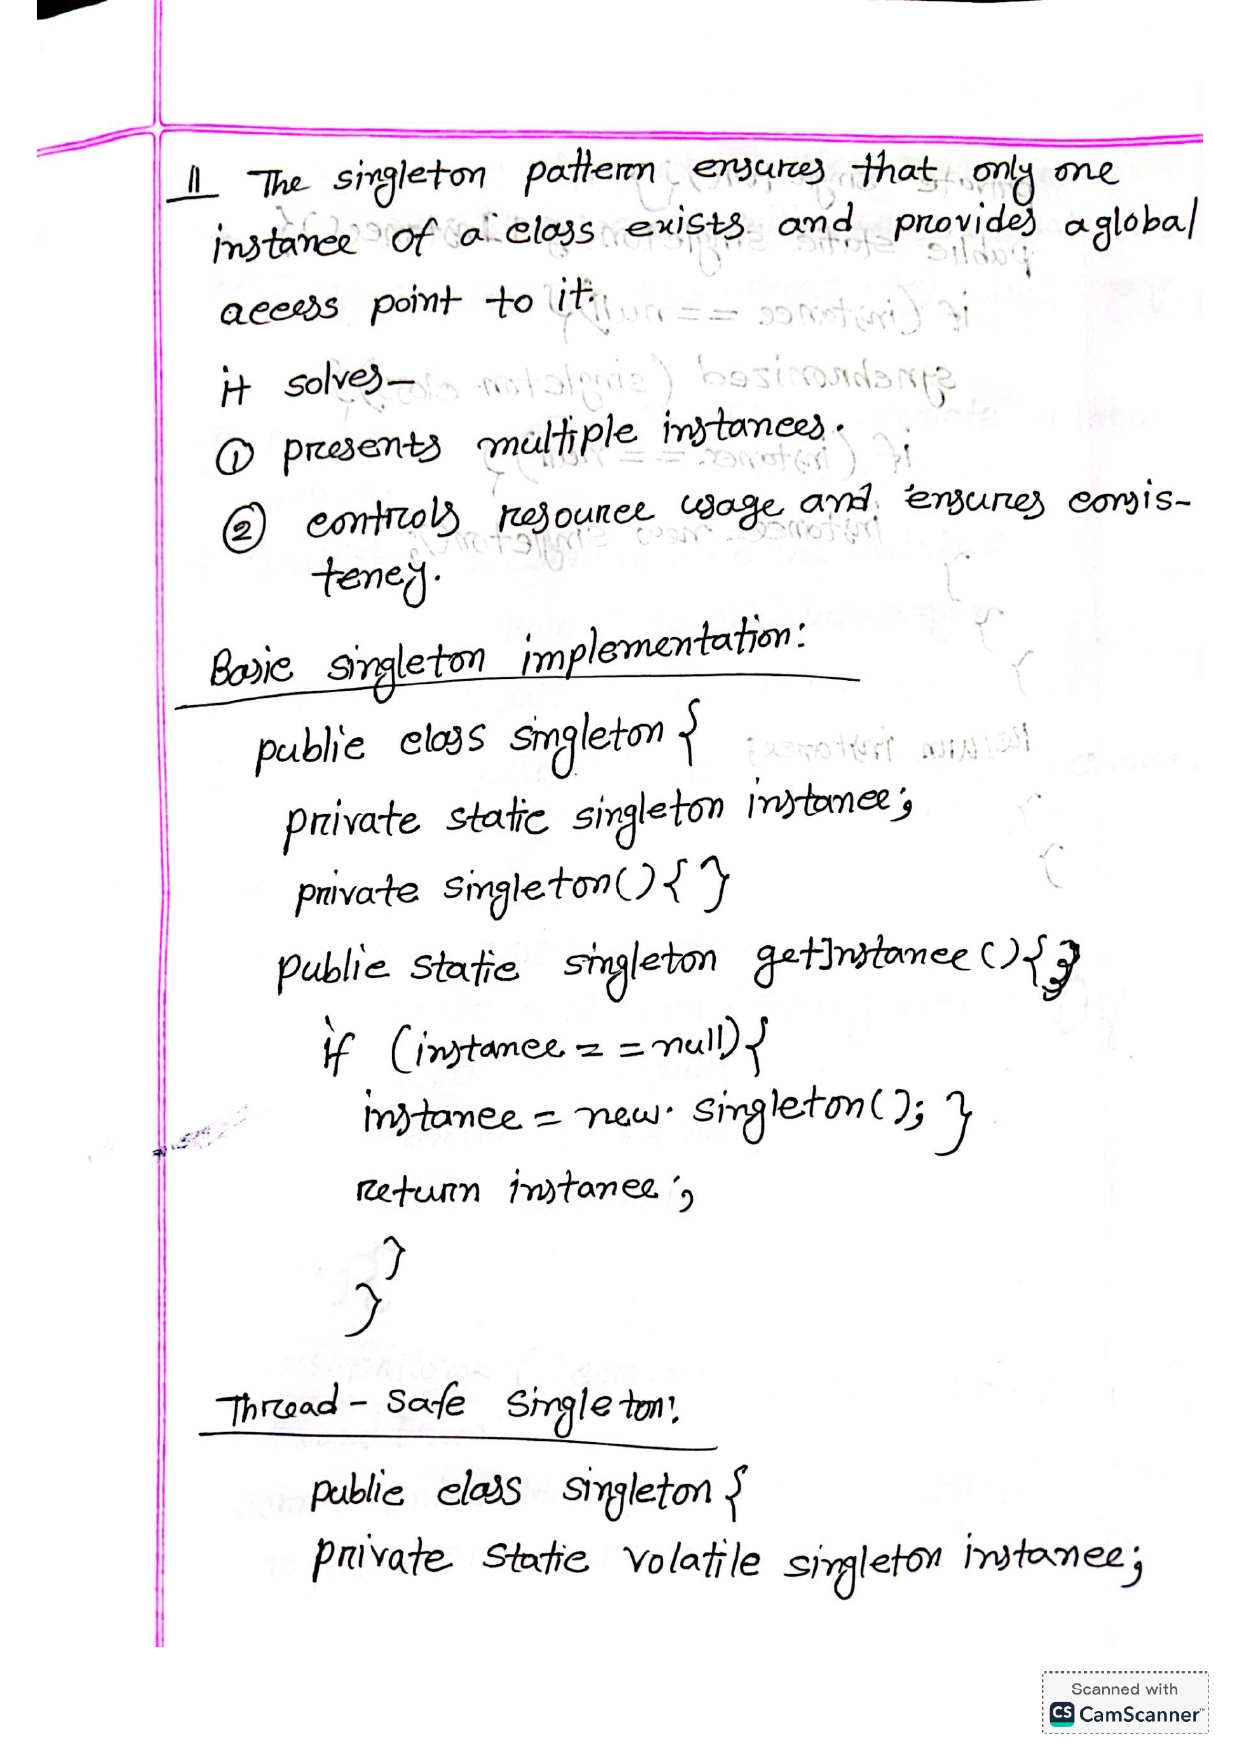 11 The singleton pattern ensures that only one
instance of a class exists and provides a global
access point to it.
it solves—
① presents multiple instances.
② controls resource usage and ensures consis-
tency.
Basic singleton implementation:
public class singleton {
private static singleton instance;
private singleton() { }
public static singleton getInstance () {
if (instance == null) {
instance = new singleton(); }
return instance;
}
}
Thread - safe singleton:
public class singleton {
private static volatile singleton instance;
Scanned with
CS CamScanner